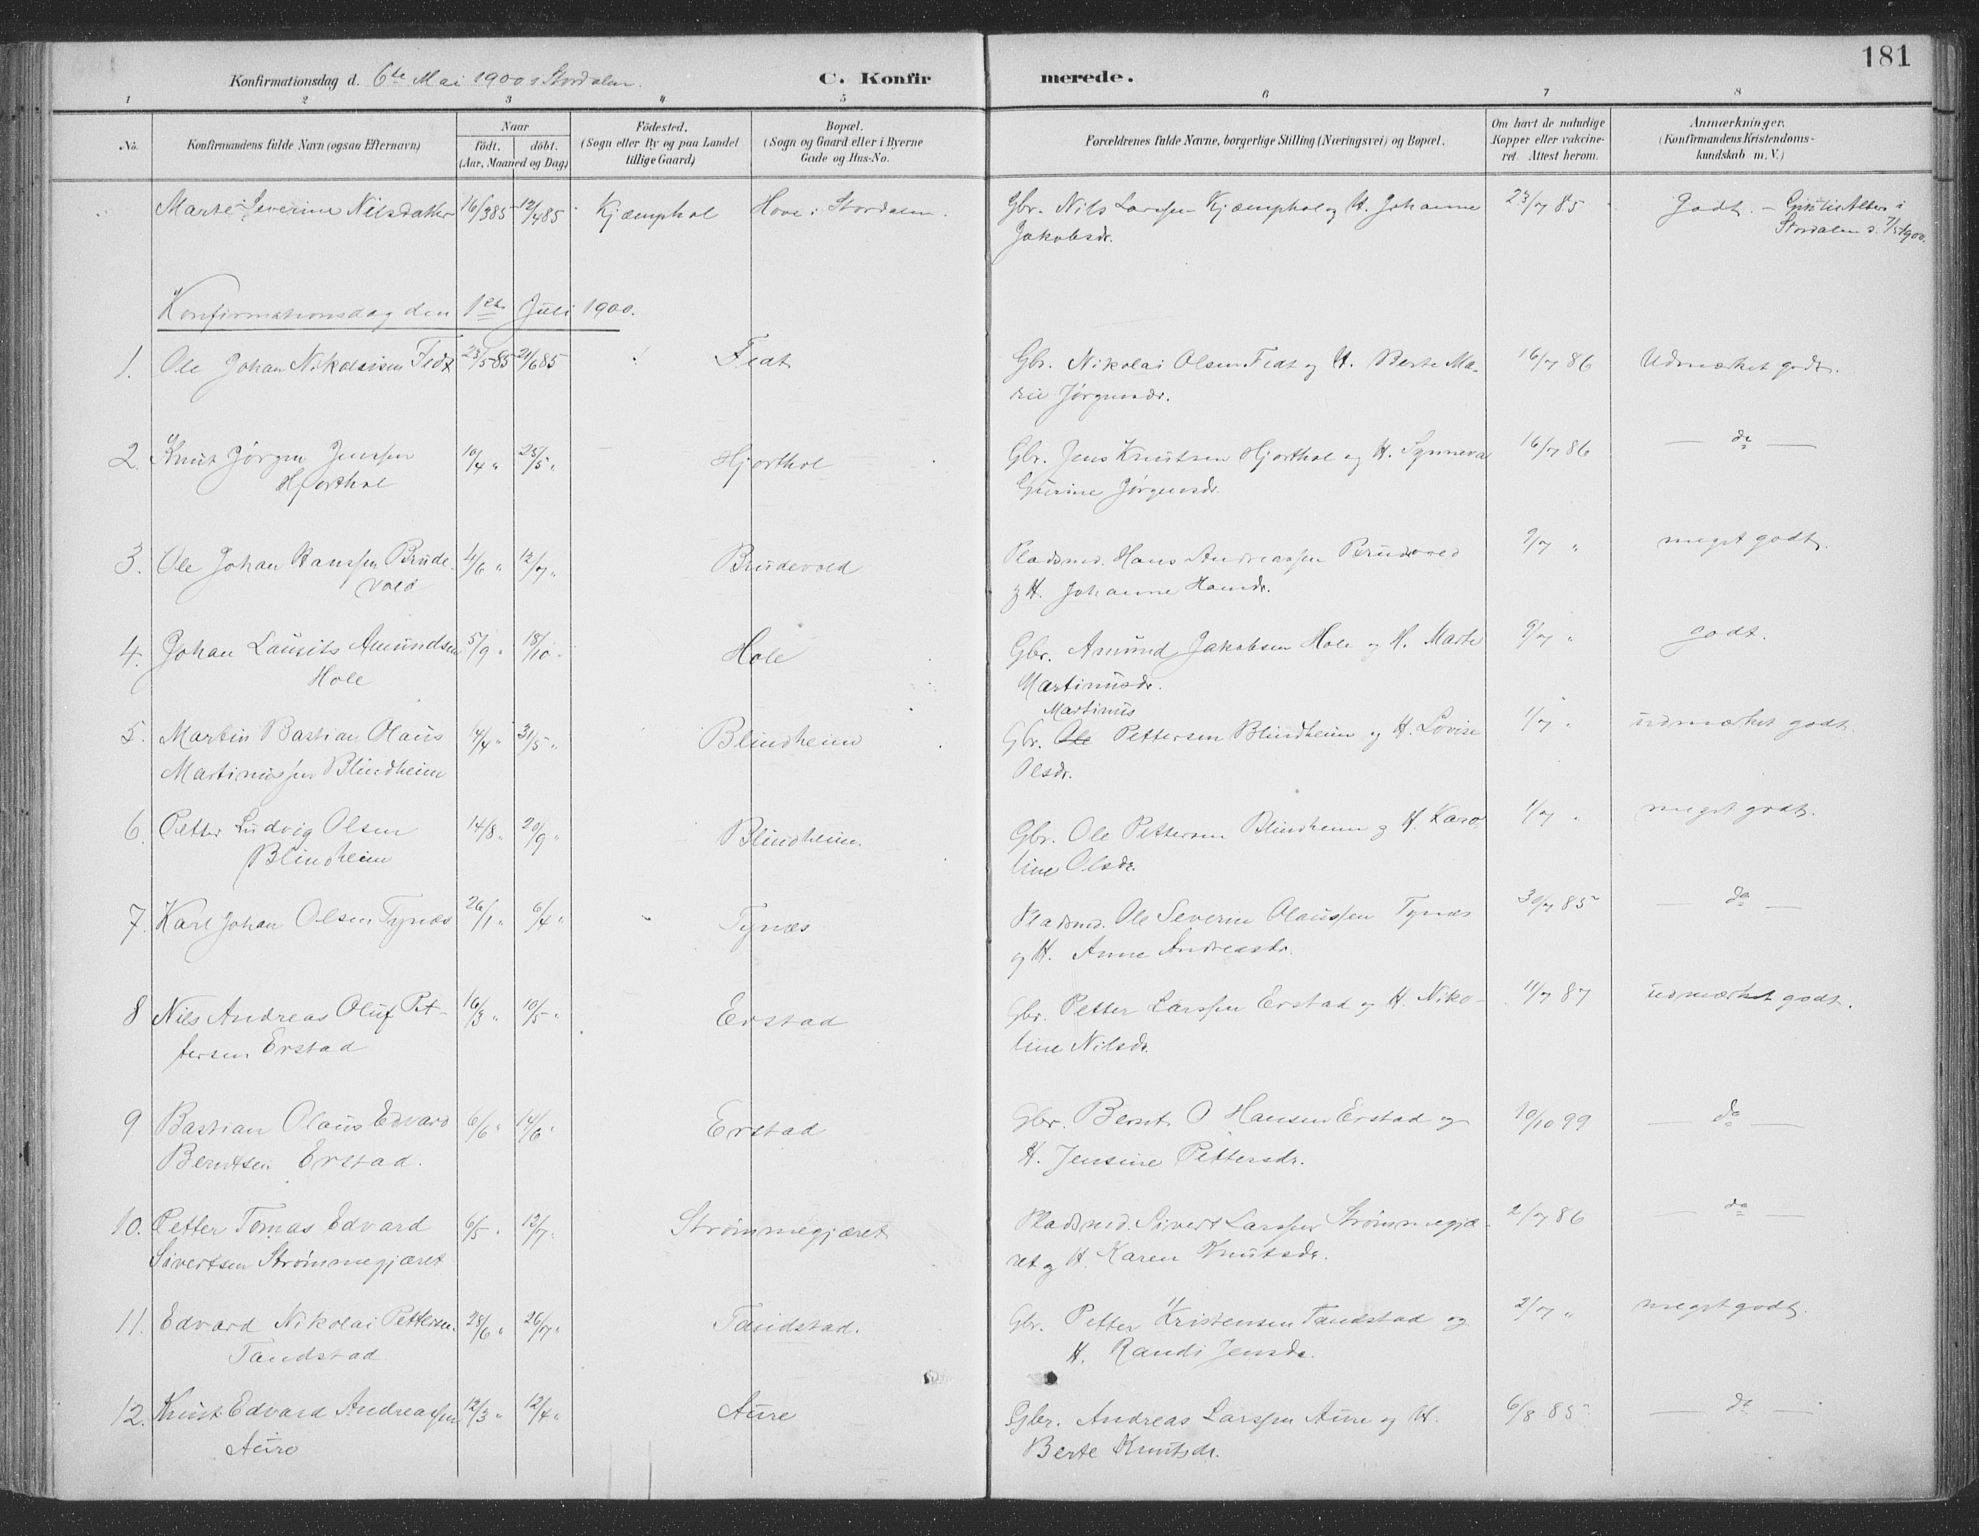 181
Konfirmationsdag d. 6te Mai 1900 i Stordalen. C. Konfirmerede.
1 2 3 4 5 6 7 8
No. Konfirmandens fulde Navn (ogsaa Efternavn) Naar födt. döbt. (Aar, Maaned og Dag) Födested. (Sogn eller By og paa Landet tillige Gaard) Bopæl. (Sogn og Gaard eller i Byerne Gade og Hus-No. Forældrenes fulde Navne, borgerlige Stilling (Næringsvei) og Bopæl. Om havt de naturlige Kopper eller vaccineret. Attest herom. Anmærkninger. (Konfirmandens Kristendomskundskab m. V.)
Marte Severine Nilsdatter 16/3 85 12/4 85 Kjæmphol Hove i Stordalen. Gbr. Nils Larssen Kjæmphol og H. Johanne 23/7 85 Godt. –
Jakobsdr. Stordalen d. 7/5 1900.
Konfirmationsdag den 1ste Juli 1900.
1. Ole Johan Nikolaisen Fedt 23/5 85 21/6 85 Fedt Gbr. Nikolai Olsen Fedt og H. Berte Ma- 16/7 86 Udmærket godt.
rie Jørgensdr.
2. Knut Jørgen Jenssen 10/4 " 25/5 " Hjorthol Gbr. Jens Knutsen Hjorthol og H. Synneva 16/7 86 — do —
Hjorthol Gurine Jørgensdr.
3. Ole Johan Hanssen Brude- 4/6 " 12/7 " Brudevold Pladsmd. Hans Andreassen Brudevold 9/7 " meget godt.
vold og H. Johanne Hansdr.
4. Johan Lausits Amundsen 5/9 " 18/10 " Hole Gbr. Amund Jakobsen Hole og H. Marte 9/7 " godt.
Hole Martinusdr.
Martinus
5. Martin Bastian Olaus 4/4 " 31/5 " Blindheim Gbr. Ole Pettersen Blindheim og H. Lovise 1/7 " udmærket godt.
Martinussen Blindheim Olsdr.
6. Petter Ludvig Olsen 14/8 " 20/9 " Blindheim. Gbr. Ole Pettersen Blindheim og H. Karo- 1/7 " meget godt.
Blindheim line Olsdr.
7. Karl Johan Olsen Tynæs 26/1 " 6/4 " Tynæs Pladsmd. Ole Severin Olaussen Tynæs 30/7 85 — do —
og H. Anne Andreasdr.
8 Nils Andreas Oluf Pet- 16/3 " 10/5 " Erstad Gbr. Petter Larssen Erstad og H. Niko- 11/7 87 udmærket godt.
tersen Erstad line Nilsdr.
9 Bastian Olaus Edvard 6/6 " 14/6 " Erstad Gbr. Bernt O Hansen Erstad og 10/10 99 — do —
Berntsen Erstad. H. Jensine Pettersdr.
10. Petter Tomas Edvard 6/5 " 12/7 " Strømmegjæret Pladsmd. Sivert Larssen Strømmegjæ- 2/7 86 — do —
Sivertsen Strømmegjæret ret og H. Karen Knutsdr.
11. Edvard Nikolai Pettersen 28/6 " 26/7 " Tandstad. Gbr. Petter Kristensen Tandstad og 2/7 " meget godt.
Tandstad H. Randi Jensdr.
12. Knut Edvard Andreassen 12/3 " 12/4 " Aure Gbr. Andreas Larssen Aure og H. 6/8 85 — do —
Aure Berte Knutsdr.